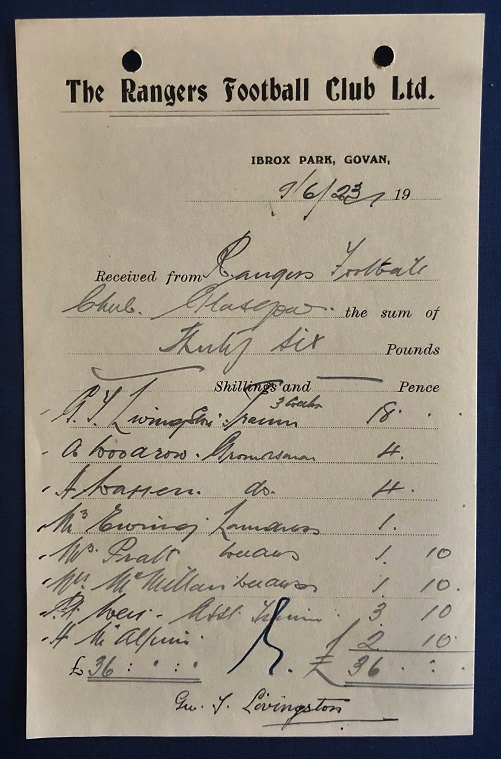 The Rangers Football Club Ltd.
IBROX PARK, GOVAN,
9/6/23 19
Received from Rangers Football
Club. Glasgow. the sum of
Thirty Six Pounds
Shillings and Pence
G. T. Livingston Trainer 3 weeks 18 . .
A Woodrow. Groundsman 4. .
A do. 4. .
Mrs Ewing Laundress 1. .
Mrs Pratt Cleaner 1. 10
Mrs McMillan Cleaner 1 10.
Weir. Asst Trainer 3 10
McAlpine. 2 10.
£36 : " : " £ 36 . .
Geo. T. Livingston